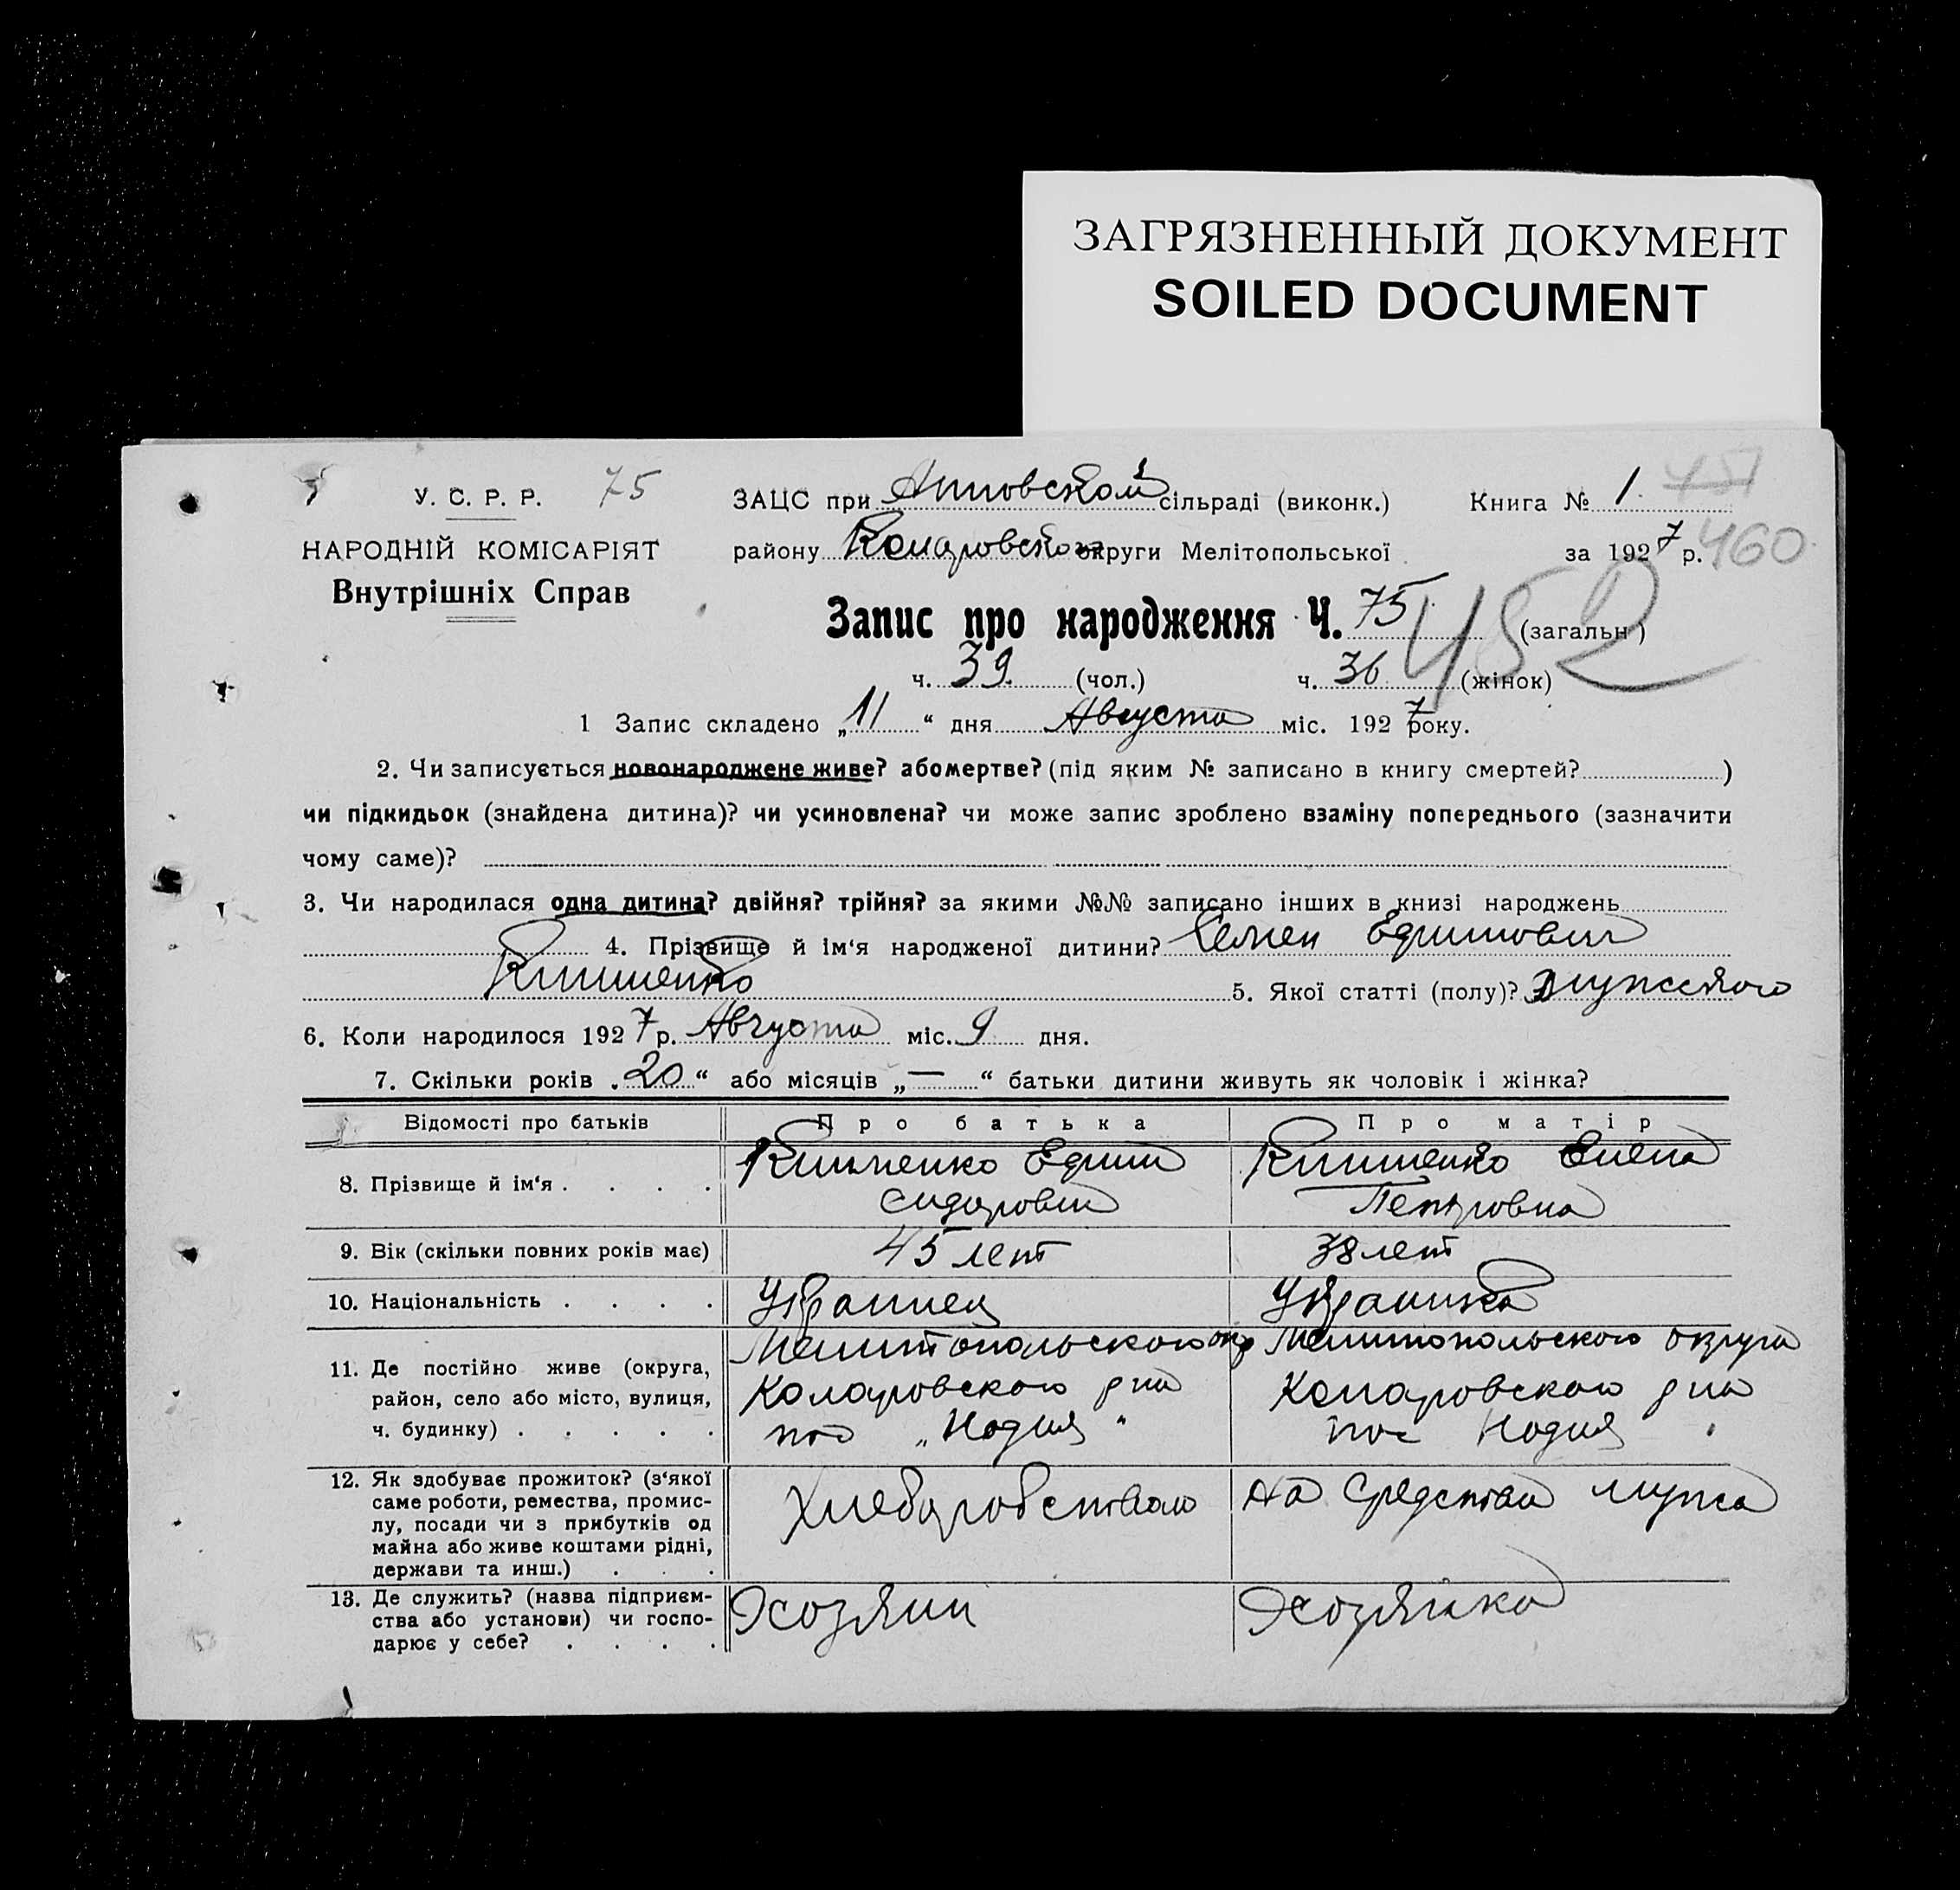 ЗАГРЯЗНЕННЫЙ ДОКУМЕНТ
SOILED DOCUMENT
У. С. Р. Р. 75
НАРОДНІЙ КОМІСАРІЯТ
Внутрішніх Справ
ЗАЦС при сільраді (виконк.) Книга № 1. 451
району Коларовского округи Мелітопольської за 1927 р. 460
Запис про народження Ч. 75 (загальн) 452
ч. 39. (чол.) ч. 36 (жінок)
1 Запис складено „11“ дня Августа міс. 1927 року.
2. Чи записується новонароджене живе? або мертве? (під яким № записано в книгу смертей? )
чи підкидьок (знайдена дитина)? чи усиновлена? чи може запис зроблено взаміну попереднього (зазначити
чому саме)?
3. Чи народилася одна дитина? двійня? трійня? за якими №№ записано інших в книзі народжень
4. Прізвище й ім‘я народженої дитини? Семен Ефимович
Клименко 5. Якої статті (полу)? мужского
6. Коли народилося 1927 р. Августа міс. 9 дня.
7. Скільки років „20“ або місяців „—“ батьки дитини живуть як чоловік і жінка?
Відомості про батьків Про батька Про матір
8. Прізвище й ім‘я . . . . Клименко Ефим Клименко Елена
Сидорович Петровна
9. Вік (скільки повних років має) 45 лет 38 лет
10. Національність . . . . Украинец Украинка
11. Де постійно живе (округа, Мелитопольского окр Мелитопольского округа
район, село або місто, вулиця, Коларовского рна Коларовского рна
ч. будинку) . . . . . пос „Надия“ пос Надия
12. Як здобуває прожиток? (з‘якої
саме роботи, ремества, промис-
лу, посади чи з прибутків од
майна або живе коштами рідні,
держави та инш.) . . . Хлеборобством На средства мужа
13. Де служить? (назва підприєм-
ства або установи) чи госпо-
дарює у себе? . . . . Хозяин Хозяйка